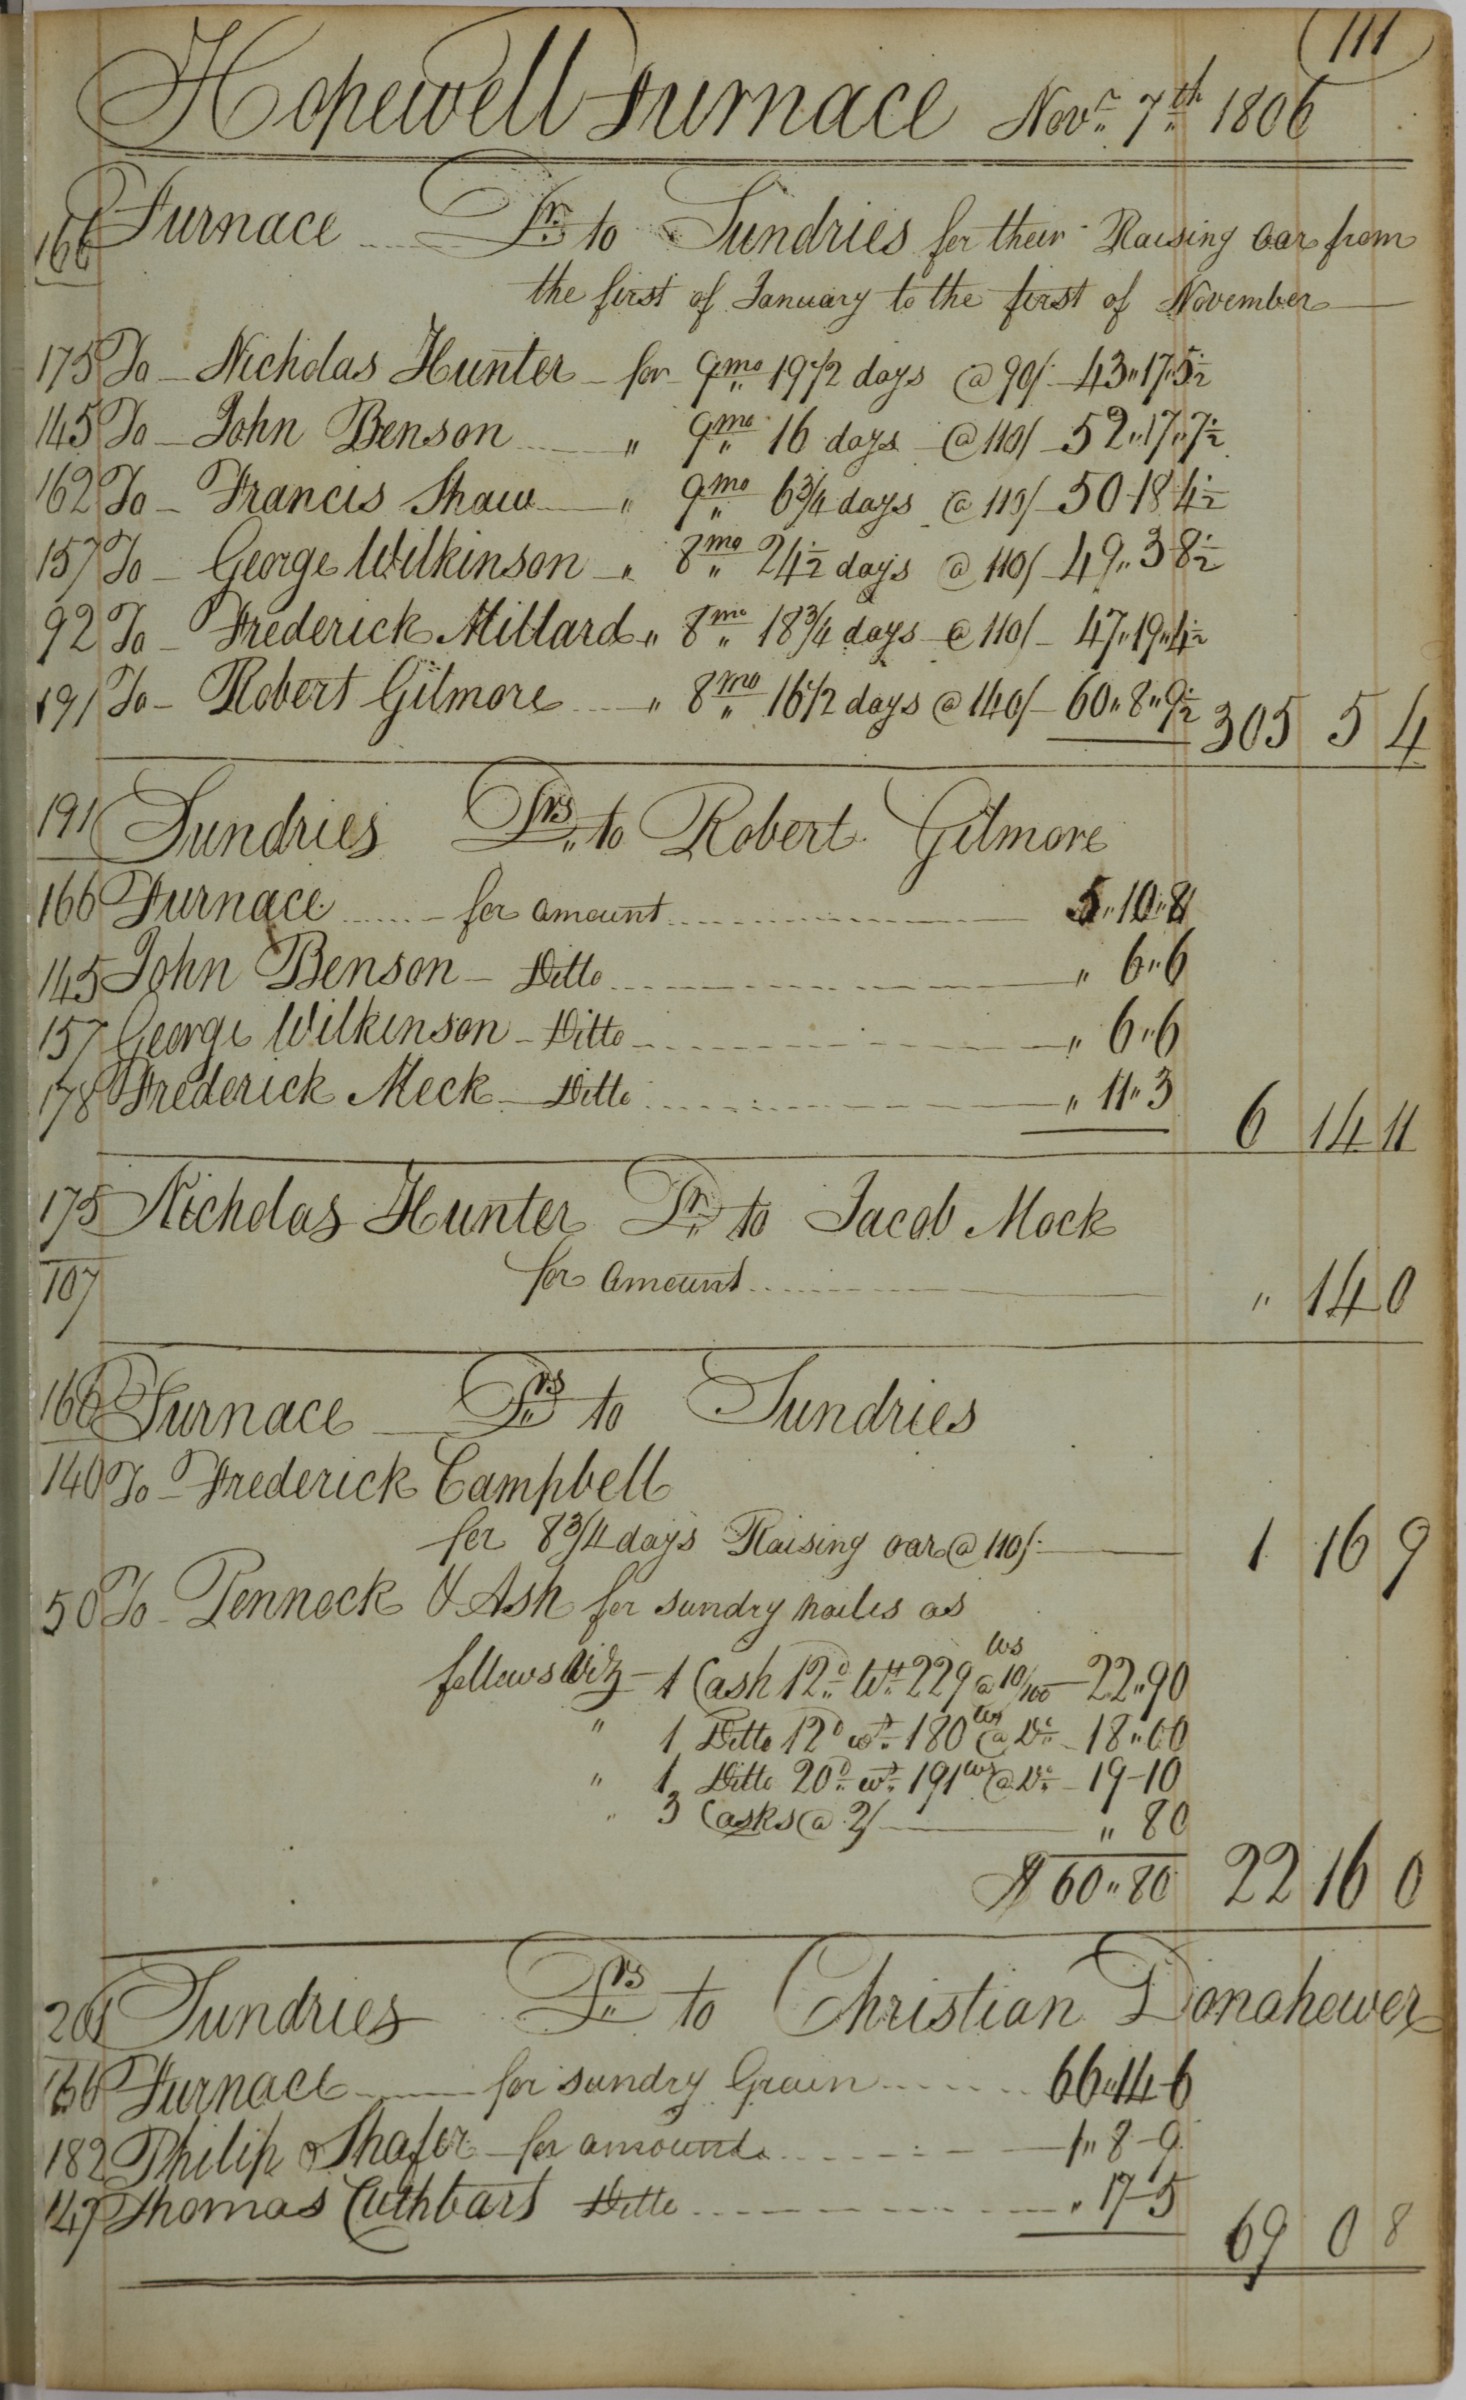 111
Hopewell Furnace Novr. 7th 1806
166 Furnace Dr. to Sundries for their Raising oar from
the first of January to the first of November
175 To Nicholas Hunter for 9mo 19 1/2 days @ 90/ 43"17"5 1/2
145 To John Benson " 9mo 16 days @ 110/ 52"17"7 1/2
162 To Francis Shaw " 9mo 6 3/4 days @ 110/ 50-18 4 1/2
157 To George Wilkinson " 8mo 24 1/2 days @ 110/ 49"3-8 1/2
92 To Frederick Millard " 8mo 18 3/4 days @ 110/ 47"19"4 1/2
191 To Robert Gilmore " 8mo 16 1/2 days @ 140/ 60"8"9 1/2 305 5 4
191 Sundries Drs. to Robert Gilmore
166 Furnace for amount 5"10"8
145 John Benson Ditto " 6"6
157 George Wilkinson Ditto " 6"6
178 Frederick Meck Ditto " 11"3 6 14 11
175 Nicholas Hunter Dr. to Jacob Mock
107 for amount " 14 0
166 Furnace Drs. to Sundries
140 To Frederick Campbell
for 8 3/4 days Raising oar @ 110/ 1 16 9
50 To Pennock & Ash for sundry nailes as
follows Viz 1 Cash 12d. Wt. 229 lbs @ 10/100 22"90
" 1 Ditto 12d wt. 180 lbs @ Do. 18"00
" 1 Ditto 20d. wt. 191 lbs @ Do. 19-10
" 3 Casks @ 2/ " 80
$ 60"80 22 16 0
201 Sundries Drs. to Christian Donahewer
166 Furnace for sundry Grain 66"14-6
182 Philip Shafer for amount 1"8-9
147 Thomas Cuthbart Ditto " 17-5 69 0 8